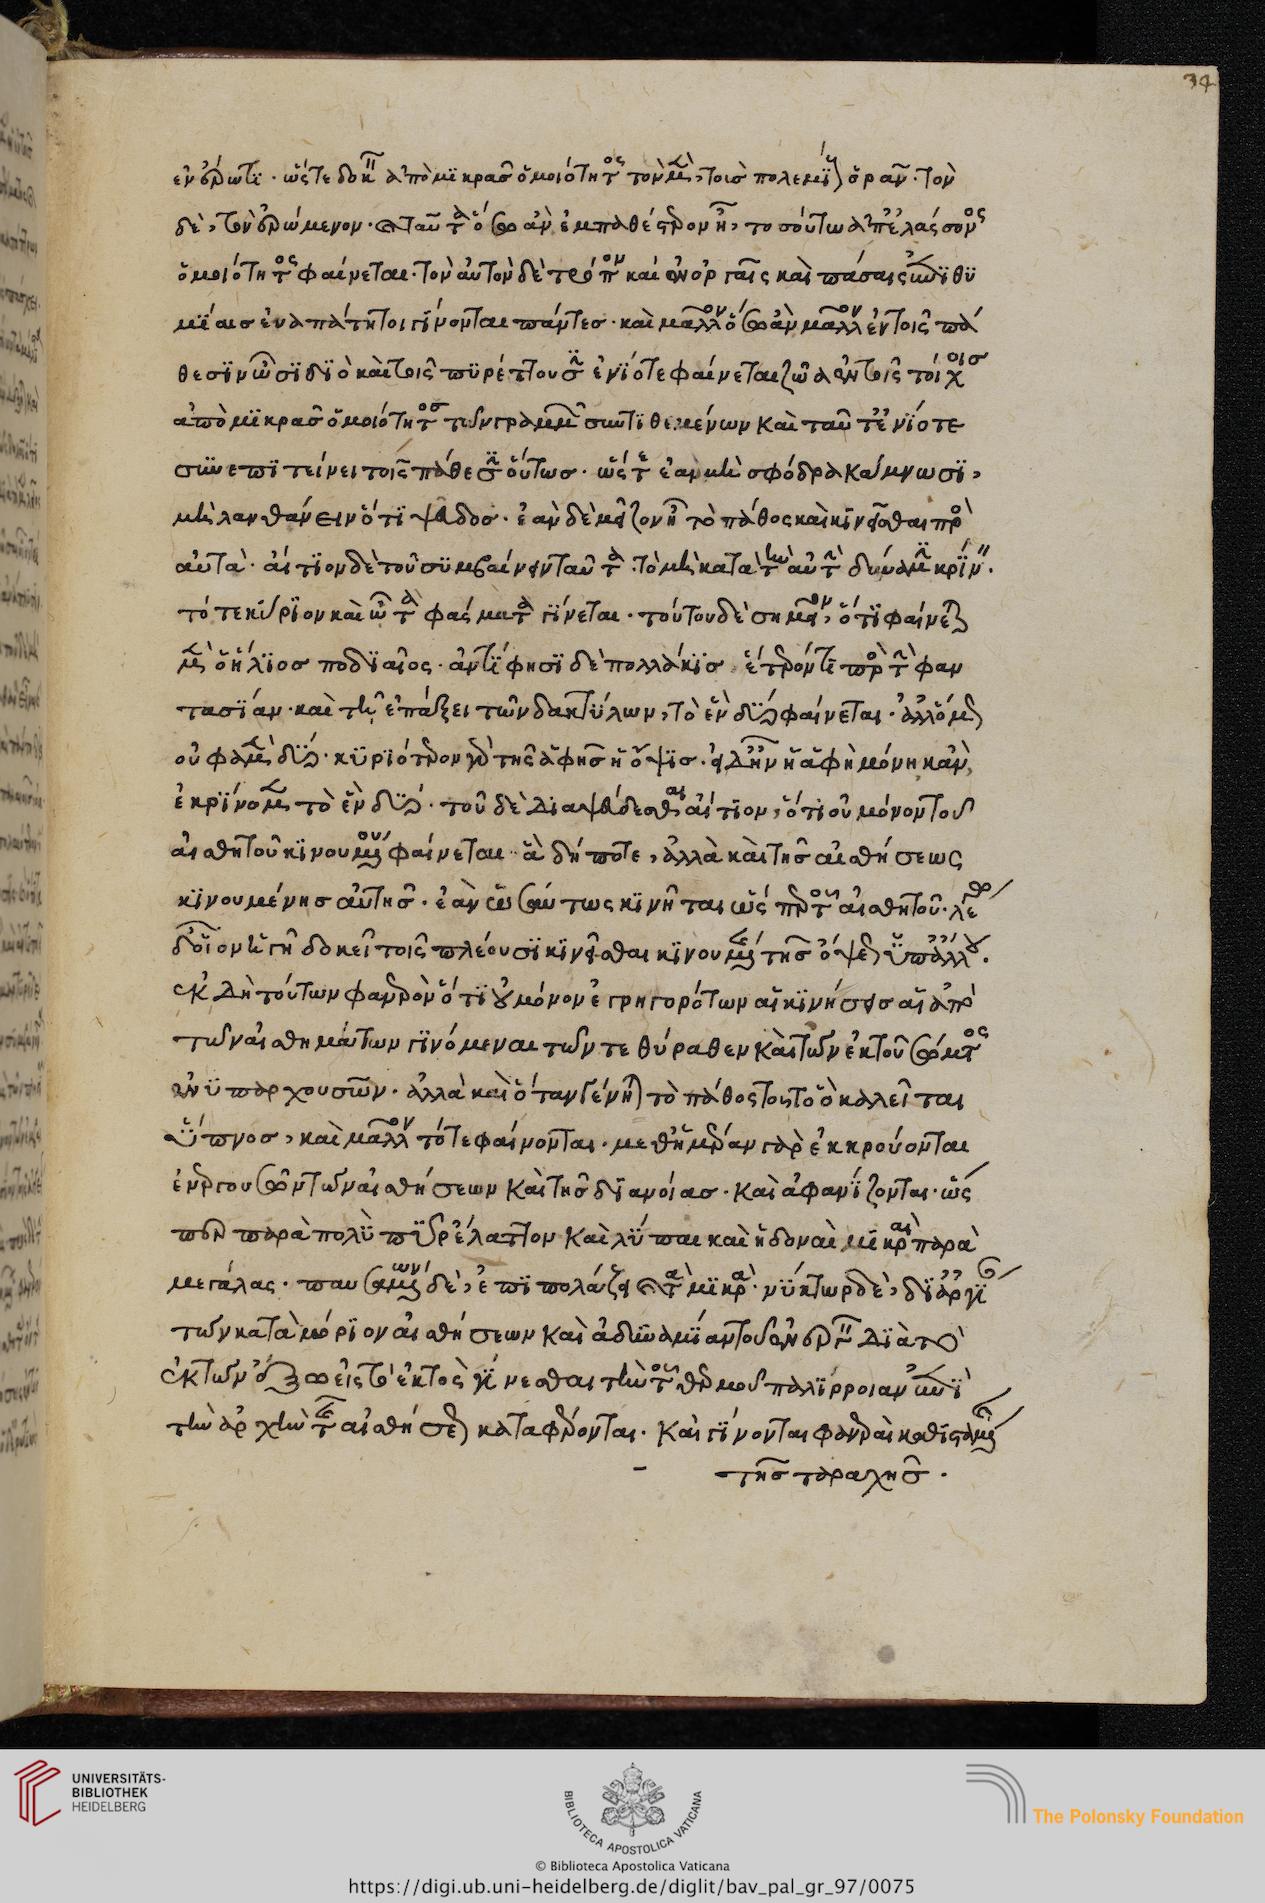 34
ἐν ἔρωτι · ὥστε δοκεῖν ἀπὸ μικρᾶς ὁμοιότητος τὸν μὲν, τοὺς πολεμίους ὁρᾶν · τὸν
δὲ, τὸν ἐρώμενον · ταῦτα δ' ὅσω ἂν ἐμπαθέστερον ἦ, τοσούτω ἀπ' ἐλάσσονος
ὁμοιότητος φαίνεται · τὸν αὐτὸν δὲ τρόπον καὶ ἐν ὀργαῖς καὶ πάσαις ἐπιθυ
μίαις εὐαπάτητοι γίνονται πάντες · καὶ μᾶλλον ὅσω ἂν μᾶλλον ἐν τοῖς πά
θεσιν ὦσι διὸ καὶ τοῖς πυρέττουσιν ἐνίοτε φαίνεται ζῶα ἐν τοῖς τοίχοις
ἀπὸ μικρᾶς ὁμοιότητος τῶν γραμμῶν συντιθεμένων καὶ ταῦτ' ἐνίοτε
συνεπιτείνει τοῖς πάθεσιν οὕτως · ὥστε ἐὰν μὲν σφόδρα κάμνωσι,
μὴ λανθάνειν ὅτι ψεῦδος · ἐὰν δὲ μεῖζον ἦ τὸ πάθος καὶ κινεῖσθαι πρὸς
αὐτά · αἴτιον δὲ τοῦ συμβαίνειν ταῦτα τὸ μὴ κατὰ τὴν αὐτὴν δύναμιν κρίνειν
τό τε κύριον καὶ ὧ τὰ φάσματα γίνεται · τούτου δὲ σημεῖον, ὅτι φαίνεται
μὲν ὁ ἥλιος ποδιαῖος · ἀντίφησι δὲ πολλάκις ἕτερόν τι πρὸς τὴν φαν
τασίαν · καὶ τῆ ἐπαλλάξει τῶν δακτύλων, τὸ ἓν δύο φαίνεται · ἀλλ' ὅμως
οὔ φαμεν δύο · κυριότερον γὰρ τῆς ἁφῆς ἡ ὄψις · εἰ δ' ἦν ἡ ἁφὴ μόνη κἂν
ἐκρίνομεν τὸ ἓν δύο · τοῦ δὲ διαψεύδεσθαι αἴτιον, ὅτι οὐ μόνον τοῦ
αἰσθητοῦ κινουμένου φαίνεται ἃ δήποτε, ἀλλὰ καὶ τῆς αἰσθήσεως
κινουμένης αὐτῆς · ἐὰν ὡσαύτως κινῆται ὥσπερ ὑπὸ τοῦ αἰσθητοῦ · λέγω
δ' οἷον ἡ γῆ δοκεῖ τοῖς πλέουσι κινεῖσθαι κινουμένης τῆς ὄψεως ὑπ' ἄλλου ·
ἐκ δὴ τούτων φανερὸν ὅτι οὐ μόνον ἐγρηγορότων αἱ κινήσεις αἱ ἀπὸ
τῶν αἰσθημάτων γινόμεναι τῶν τε θύραθεν καὶ τῶν ἐκ τοῦ σώματος
ἐνυπαρχουσῶν · ἀλλὰ καὶ ὅταν γένηται τὸ πάθος τοῦτο ὃ καλεῖται
ὕπνος, καὶ μᾶλλον τότε φαίνονται · μεθ' ἡμέραν γὰρ ἐκκρούονται
ἐνεργουσῶν τῶν αἰσθήσεων καὶ τῆς διανοίας · καὶ ἀφανίζονται · ὥς
περ παρὰ πολὺ πῦρ ἔλαττον καὶ λύπαι καὶ ἡδοναὶ μικραὶ παρὰ
μεγάλας · παυσαμένων δὲ, ἐπιπολάζει τὰ μικρά · νύκτωρ δὲ, δι' ἀργίαν
τῶν κατὰ μόριον αἰσθήσεων καὶ ἀδυναμίαν τοῦ ἐνεργεῖν διὰ τὸ
ἐκ τῶν ἔξω εἰς τὸ ἐντὸς γίνεσθαι τὴν τοῦ θερμοῦ παλίρροιαν ἐπὶ
τὴν ἀρχὴν τῆς αἰσθήσεως καταφέρονται · καὶ γίνονται φανεραὶ καθισταμένης
τῆς ταραχῆς ·
UNIVERSITÄTS-
BIBLIOTHEK
HEIDELBERG
BIBLIOTECA APOSTOLICA VATICANA
The Polonsky Foundation
© Biblioteca Apostolica Vaticana
https://digi.ub.uni-heidelberg.de/diglit/bav_pal_gr_97/0075